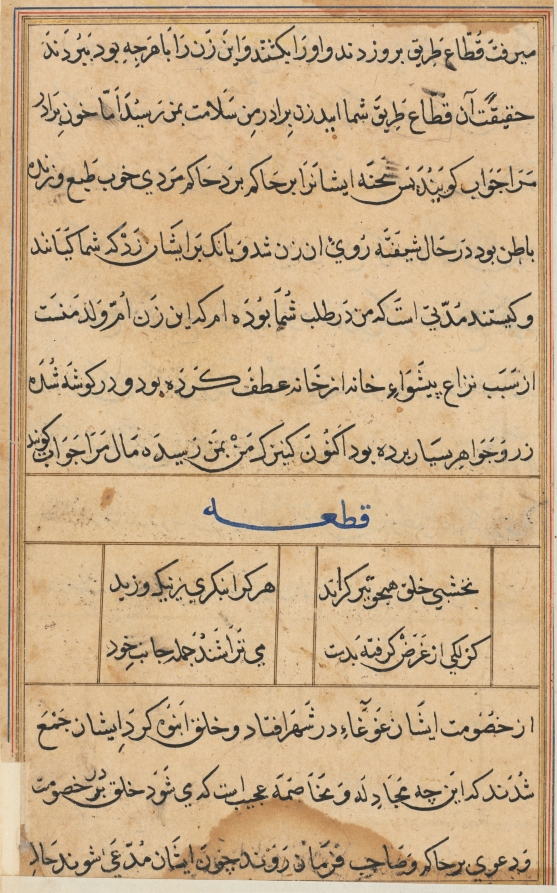 میرفت قُطّاع طریق بروزدند و اورا بکشتند و این زن را با هرچه بود ببردند
حقیقت آن قطّاع طریق شما اید زن برادر من سَلامت بمن رسید اما خون برادر
مرا جواب کویید پس شحنه ایشانرا بر حاکم برد حاکم مردی خوب طبع و زنده
باطن بود در حال شیفته روی ان زن شد و بانک بر ایشان زد که شما کیانند
و کیستند مدّتی است که من در طلب شما بوده ام که این زن اُمّ ولد منست
از سَبَب نزاع پیشواء خانه از خانه عطف کرده بود و در کوشه شده
زر و جواهر بسیار برده بود اکنون کنیزک من بمن رسیده مال مرا جواب کویند
قطعه
نخشبی خلق همچو تیر کراند
هر کرا بنکری ز نیک و ز بد
کزلکی از غرض کرفته بدست
می تراشند جمله جانب خود
از خصومت ایشان غوغاء در شهر افتاد و خلق انبوه کرد ایشان جمع
شدند که این چه مجادله و مخاصمه عجیب است که می شود خلق برین خصومت
و دعوی بر حاکم و صاحب فرمان روند چون ایشان مدّعی شوند حال